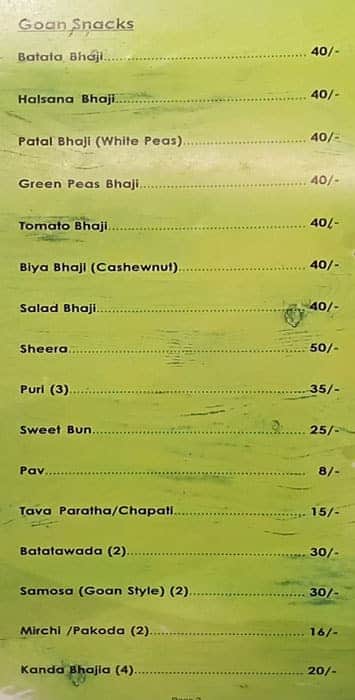 Goan Snacks
Batata Bhaji 40/-
Halsana Bhaji 40/-
Patal Bhaji (White Peas) 40/-
Green Peas Bhaji 40/-
Tomato Bhaji 40/-
Biya Bhaji (Cashewnut) 40/-
Salad Bhaji 40/-
Sheera 50/-
Puri (3) 35/-
Sweet Bun 25/-
Pav 8/-
Tava Paratha/Chapati 15/-
Batatawada (2) 30/-
Samosa (Goan Style) (2) 30/-
Mirchi /Pakoda (2) 16/-
Kanda Bhajia (4) 20/-